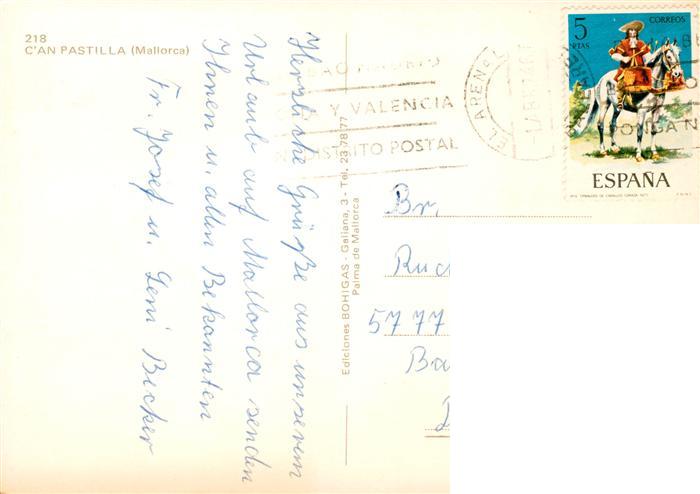 218
C'AN PASTILLA (Mallorca)
Herzliche Grüße aus unserem
Urlaub auf Mallorca senden
Ihnen u. allen Bekannten
Fr. Josef u. Leni Becker
Ediciones BOHIGAS - Galiana, 3 - Tel. 23 78 77
Palma de Mallorca
Y VALENCIA
DISTRITO POSTAL
EL ARENAL
PONGA
5
PTAS
CORREOS
ESPAÑA
Br.
5777